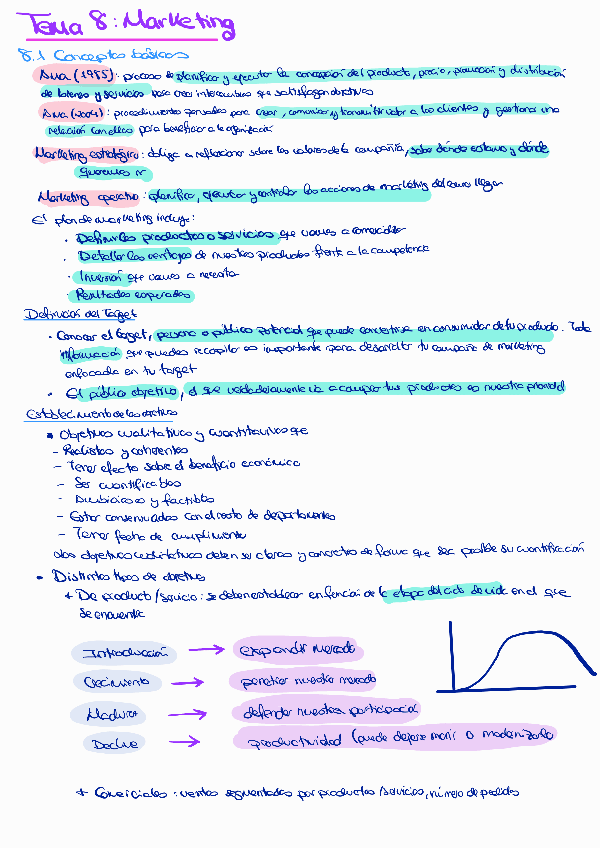 Tema 8: Marketing
8.1 Conceptos básicos
AMA (1985): proceso de planificar y ejecutar la concepción del producto, precio, promoción y distribución
de bienes y servicios para crear intercambios que satisfagan objetivos
AMA (2004): procedimientos pensados para crear, comunicar y transmitir valor a los clientes y gestionar una
relación con ellos para beneficiar a la organización
Marketing estratégico: obliga a reflexionar sobre los valores de la compañía, saber dónde estamos y dónde
queremos ir
Marketing operativo: planificar, ejecutar y controlar las acciones de marketing del como llegar
El plan de marketing incluye:
· Definir los productos o servicios que vamos a comercializar
· Detallar las ventajas de nuestros productos frente a la competencia
· Inversión que vamos a necesitar
· Resultados esperados
Definición del Target
· Conocer el target, persona o público potencial que puede convertirse en consumidor de tu producto. Toda
información que puedas recopilar es importante para desarrollar tu campaña de marketing
enfocada en tu target
· El público objetivo, el que verdaderamente va a comprar tus productos es nuestra prioridad
Establecimiento de los objetivos
· Objetivos cualitativos y cuantitativos que
- Realistas y coherentes
- Tener efecto sobre el beneficio económico
- Ser cuantificables
- Ambiciosos y factibles
- Estar consensuados con el resto de departamentos
- Tener fecha de cumplimiento
Los objetivos cualitativos deben ser claros y concretos de forma que sea posible su cuantificación
· Distintos tipos de objetivos
+ De producto/servicio: se deben establecer en función de la etapa del ciclo de vida en el que
se encuentre
Introducción → expandir mercado
Crecimiento → penetrar nuestro mercado
Madurez → defender nuestra participación
Declive → productividad (puede dejarse morir o modernizarlo
+ Comerciales: ventas segmentadas por productos/servicios, número de pedidos